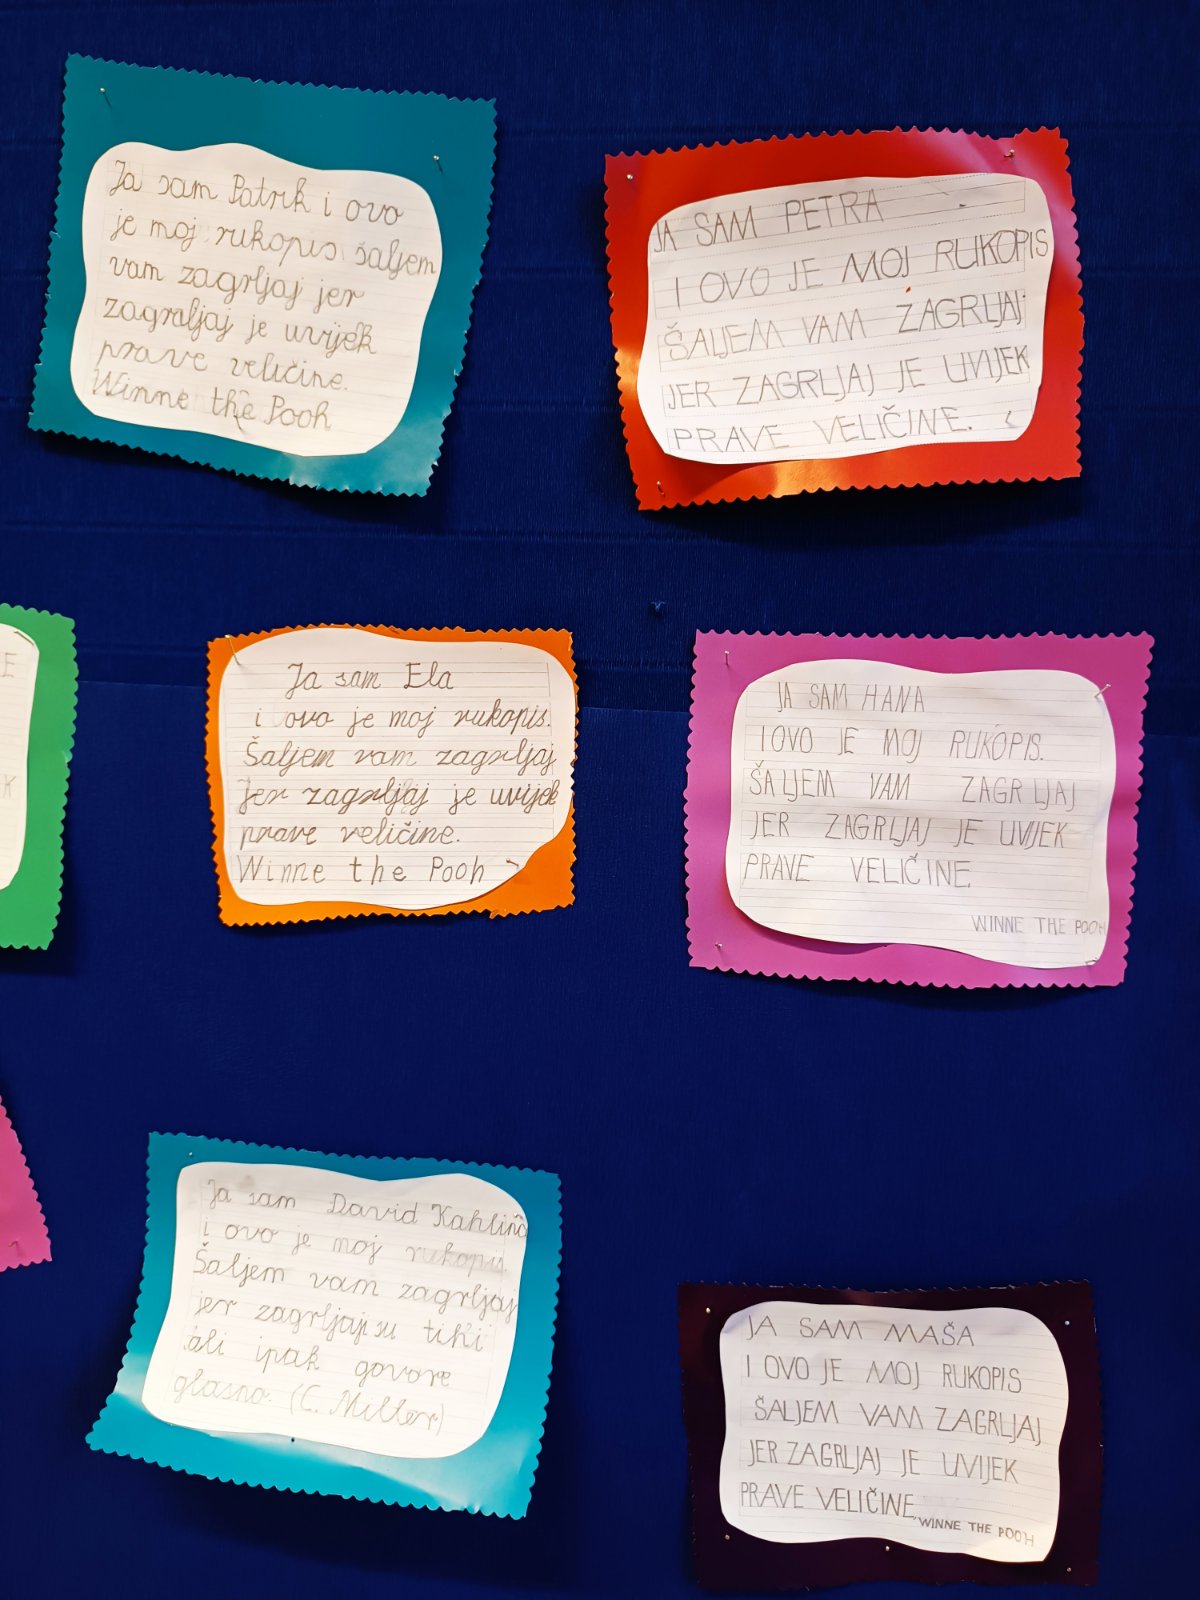 Ja sam Patrik i ovo
je moj rukopis šaljem
vam zagrljaj jer
zagraljaj je uvijek
prave veličine.
Winne the Pooh
JA SAM PETRA
I OVO JE MOJ RUKOPIS
ŠALJEM VAM ZAGRLJAJ
JER ZAGRLJAJ JE UVIJEK
PRAVE VELIČINE.
E
K
Ja sam Ela
i ovo je moj rukopis.
Šaljem vam zagrljaj
Jer zagrljaj je uvijek
prave veličine.
Winne the Pooh
JA SAM HANA
I OVO JE MOJ RUKOPIS.
ŠALJEM VAM ZAGRLJAJ
JER ZAGRLJAJ JE UVIJEK
PRAVE VELIČINE
WINNE THE POOH
Ja sam David Kahlina
i ovo je moj rukopis.
Šaljem vam zagrljaj
jer zagrljaji su tihi
ali ipak govore
glasno. (C. Miller)
JA SAM MAŠA
I OVO JE MOJ RUKOPIS
ŠALJEM VAM ZAGRLJAJ
JER ZAGRLJAJ JE UVIJEK
PRAVE VELIČINE.
WINNE THE POOH